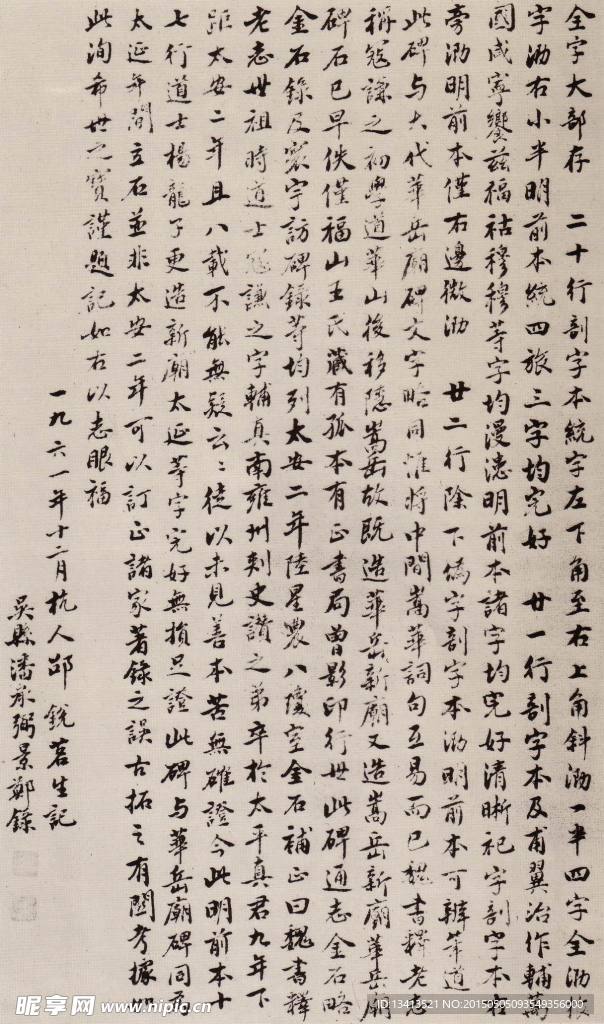 全字大部存　二十行剖字本統字左下角至右上角斜泐一半四字全泐後
字泐右小半明前本統四旅三字均完好　廿一行剖字本及甫翼治作輔萬
國咸寧饗茲福祜穆穆等字均漫漶明前本諸字均完好清晰祀字剖字本右
旁泐明前本僅右邊微泐　廿二行除下偽字剖字本泐明前本可辨華道
此碑與大代華岳廟碑文字略同惟將中間嵩華詞句互易而已魏書釋老志
稱寇謙之初學道華山後移隱嵩岳故既造華岳新廟又造嵩岳新廟華岳廟
碑石已早佚僅福山王氏藏有孤本有正書局曾影印行世此碑通志金石略
金石錄及寰宇訪碑錄等均列太安二年陸星農八瓊室金石補正曰魏書釋
老志世祖時道士寇謙之字輔真南雍州刺史讚之弟卒於太平真君九年下
距太安二年且八載不能無疑云云徒以未見善本苦無確證今此明前本十
七行道士楊龍子更造新廟太延等字完好無損足證此碑與華岳廟碑同為
太延年間立石並非太安二年可以訂正諸家著錄之誤古拓之有關考據如
此洵希世之寶謹題記如右以志眼福
一九六一年十二月杭人邵銳茗生記
吳縣潘承弼景鄭錄
昵享网 www.nipic.cn
ID:13413521 NO:20150505093549356000